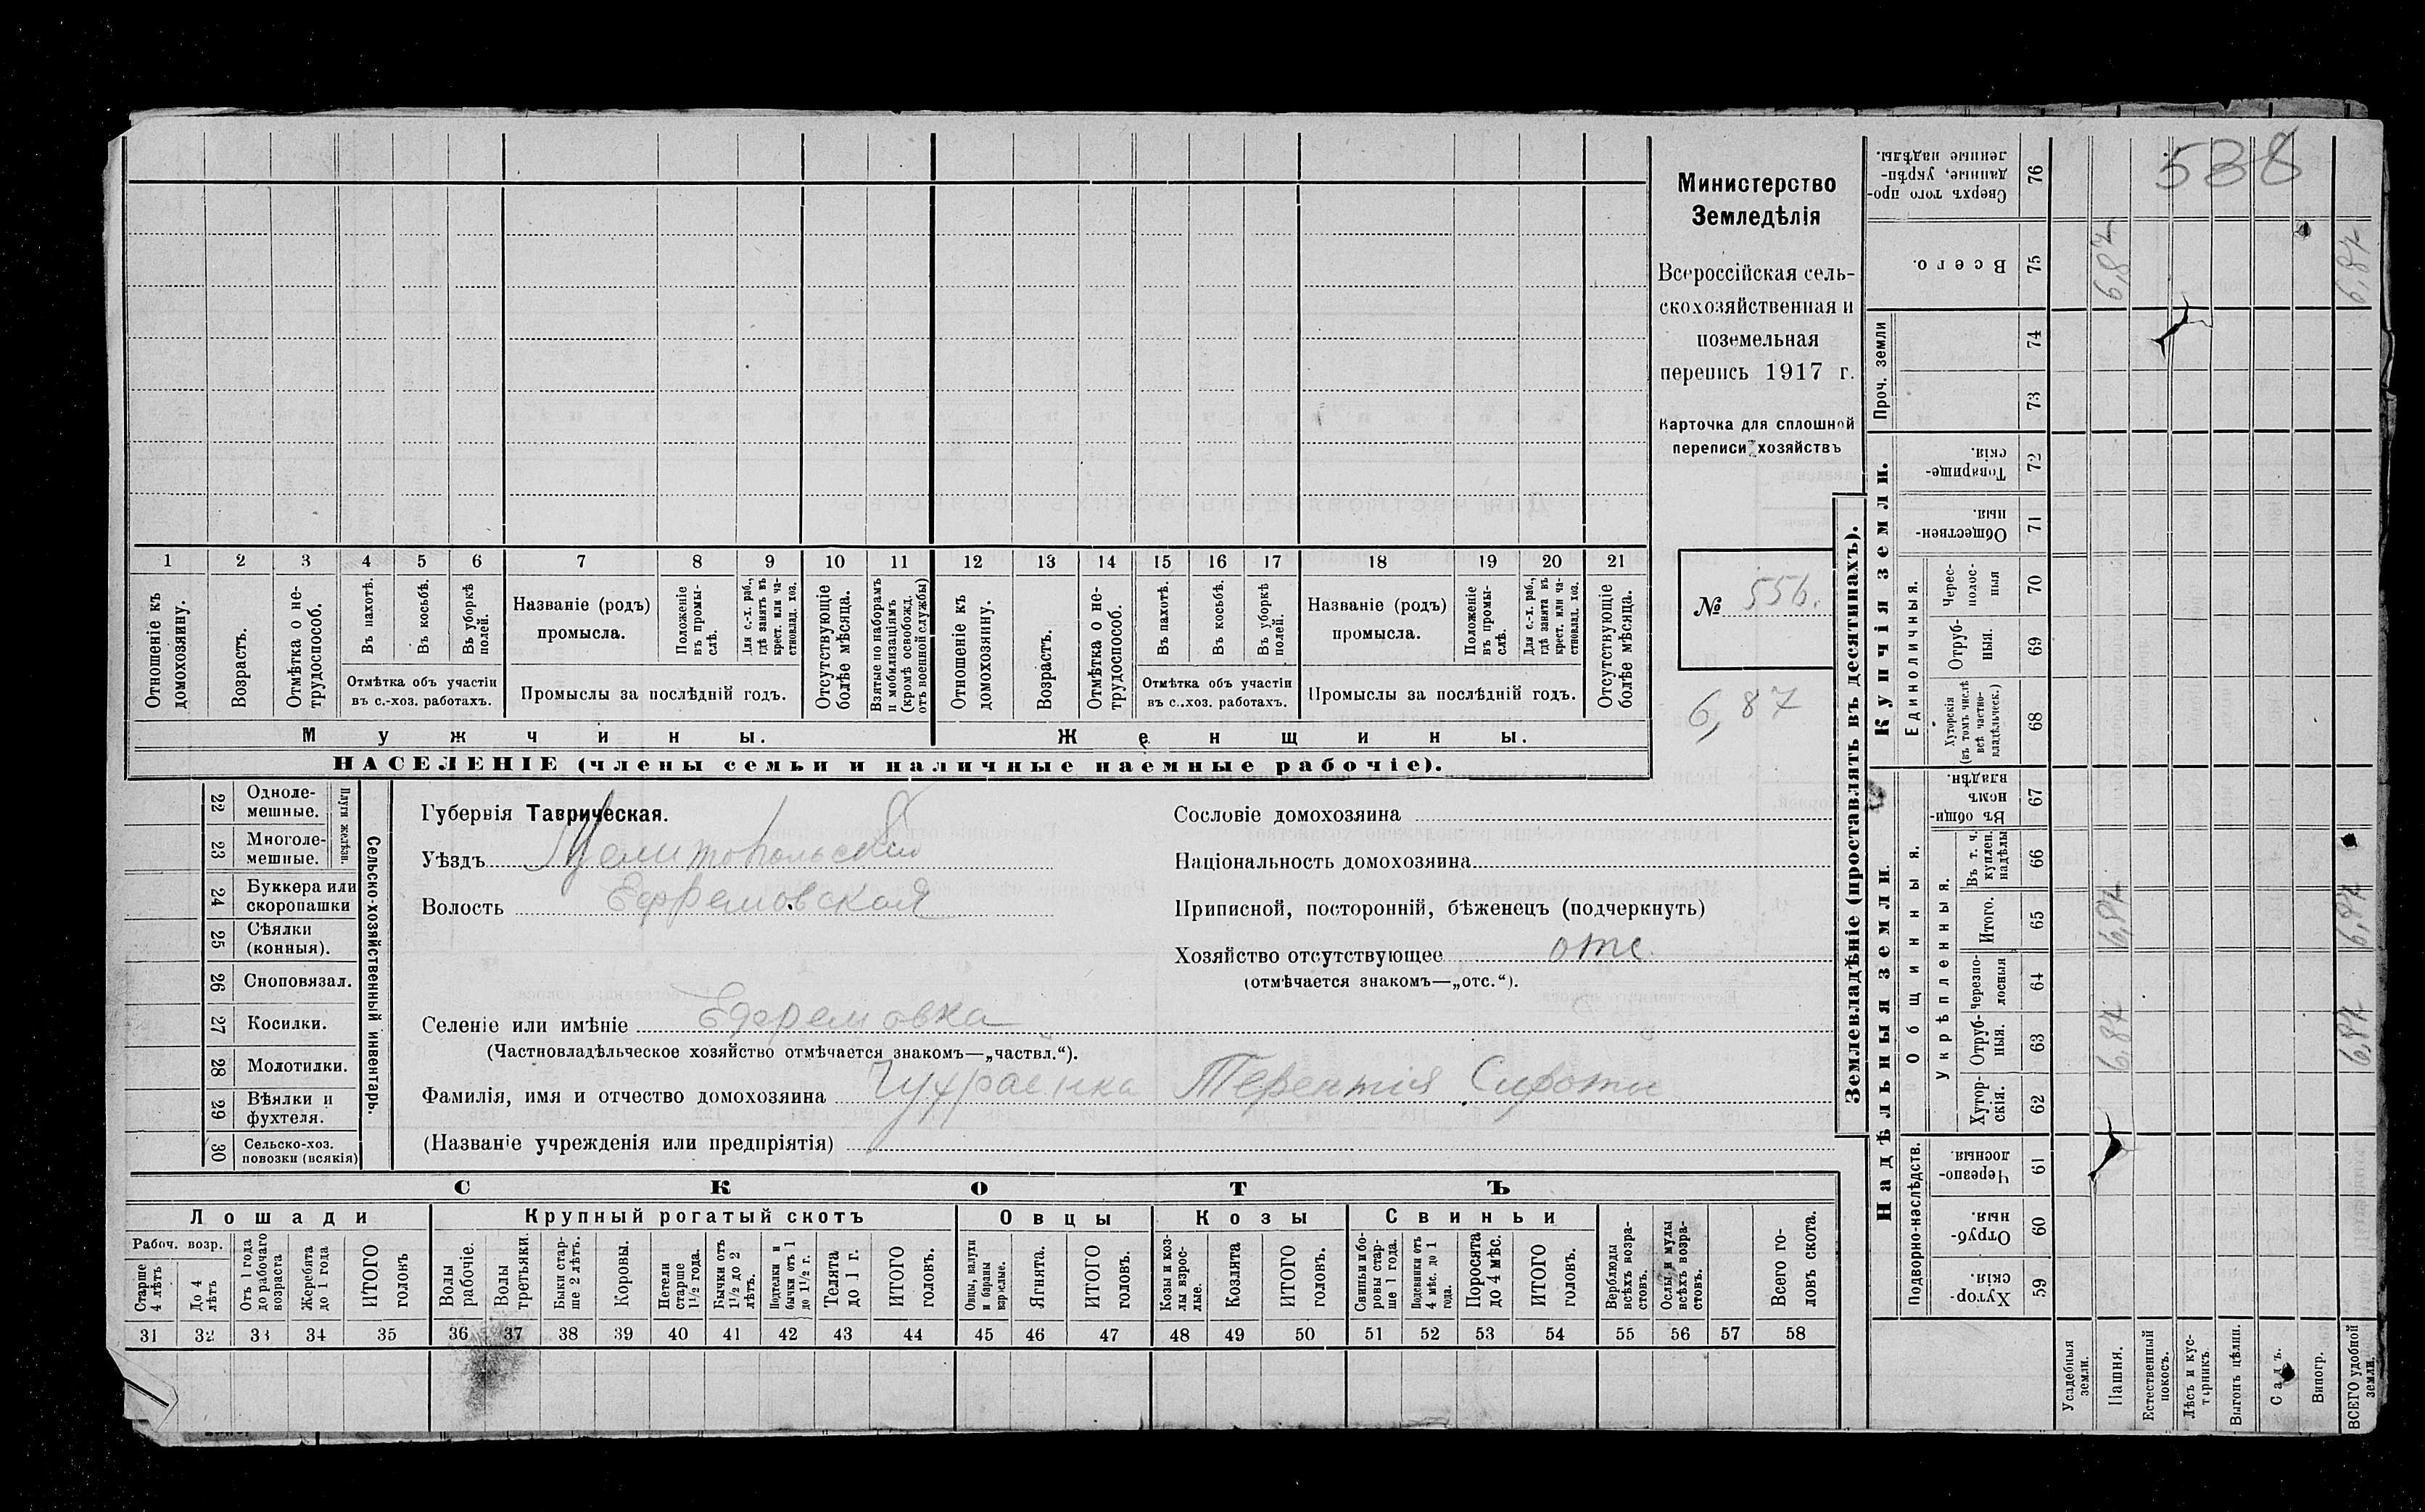 538
Министерство
Земледѣлія
Всероссійская сель-
скохозяйственная и
поземельная
перепись 1917 г.
Карточка для сплошной
переписи хозяйствъ
№ 556.
6,87
1 2 3 4 5 6 7 8 9 10 11 12 13 14 15 16 17 18 19 20 21
Отношеніе къ домохозяину.
Возрастъ.
Отмѣтка о не-трудоспособ.
Въ пахотѣ.
Въ косьбѣ.
Въ уборкѣ полей.
Отмѣтка объ участіи
въ с.-хоз. работахъ.
Названіе (родъ)
промысла.
Положеніе въ промы-слѣ.
Для с.-х. раб., гдѣ занятъ въ крест. или ча-стновлад. хоз.
Промыслы за послѣдній годъ.
Отсутствующіе болѣе мѣсяца.
Взятые по наборамъ и мобилизаціямъ (кромѣ освобожд. отъ военной службы)
Отношеніе къ домохозяину.
Возрастъ.
Отмѣтка о не-трудоспособ.
Въ пахотѣ.
Въ косьбѣ.
Въ уборкѣ полей.
Отмѣтка объ участіи
въ с..хоз. работахъ.
Названіе (родъ)
промысла.
Положеніе въ промы-слѣ.
Для с.-х. раб., гдѣ занята въ крест. или ча-стновлад. хоз.
Промыслы за послѣдній годъ.
Отсутствующіе болѣе мѣсяца.
Мужчины. Женщины.
НАСЕЛЕНІЕ (члены семьи и наличные наемные рабочіе).
22 Одноле-мешные.
23 Многоле-мешные.
Плуги желѣзн.
24 Буккера или скоропашки
25 Сѣялки (конныя).
26 Сноповязал.
27 Косилки.
28 Молотилки.
29 Вѣялки и фухтеля.
30 Сельско-хоз. повозки (всякія)
Сельско-хозяйственный инвентарь.
Губернія Таврическая.
Уѣздъ Мелитопольскій
Волость Ефремовская
Селеніе или имѣніе Ефремовка
(Частновладѣльческое хозяйство отмѣчается знакомъ—„частвл.“).
Фамилія, имя и отчество домохозяина Чухраенка Терентія
(Названіе учрежденія или предпріятія)
Сословіе домохозяина
Національность домохозяина
Приписной, посторонній, бѣженецъ (подчеркнуть)
Хозяйство отсутствующее отс.
(отмѣчается знакомъ—„отс.“).
СКОТЪ
Лошади Крупный рогатый скотъ Овцы Козы Свиньи
Рабоч. возр.
Старше 4 лѣтъ
До 4 лѣтъ
Отъ 1 года до рабочаго возраста
Жеребята до 1 года
ИТОГО головъ
Волы рабочіе.
Волы третьяки.
Быки стар-ше 2 лѣтъ.
Коровы.
Нетели старше 1½ года.
Бычки отъ 1½ до 2 лѣтъ.
Подтелки и бычки отъ 1 до 1½ г.
Телята до 1 г.
ИТОГО головъ.
Овцы, валухи и бараны взрослые.
Ягнята.
ИТОГО головъ.
Козы и коз-лы взрос-лые.
Козлята
ИТОГО головъ.
Свиньи и бо-ровы стар-ше 1 года.
Подсвинки отъ 4 мѣс. до 1 года.
Поросята до 4 мѣс.
ИТОГО головъ.
Верблюды всѣхъ возра-стовъ.
Ослы и мулы всѣхъ возра-стовъ.
Всего го-ловъ скота.
31 32 33 34 35 36 37 38 39 40 41 42 43 44 45 46 47 48 49 50 51 52 53 54 55 56 57 58
Землевладѣніе (проставлять въ десятинахъ).
Надѣльныя земли.
Подворно-наслѣдств.
Хутор-скія. 59
Отруб-ныя. 60
Черезпо-лосныя. 61
Общинныя.
Укрѣпленныя.
Хутор-скія. 62
Отруб-ныя. 63
Черезпо-лосныя 64
Итого. 65
Въ т. ч. куплен. надѣлы 66
Въ общин-номъ владѣн. 67
Купчія земли.
Единоличныя.
Хуторскія (въ томъ числѣ всѣ частно-владѣльческ.) 68
Отруб-ныя. 69
Черес-полос-ныя 70
Обществен-ныя. 71
Товарище-скія. 72
Проч. земли
73
74
Всего. 75
Сверхъ того про-данные, укрѣп-ленные надѣлы. 76
Усадебныя земли.
Пашня. 6,87 6,87 6,87
Естественный покосъ.
Лѣсъ и кус-тарникъ.
Выгонъ цѣлин.
Садъ.
Виногр.
ВСЕГО удобной земли. 6,87 6,87 6,87